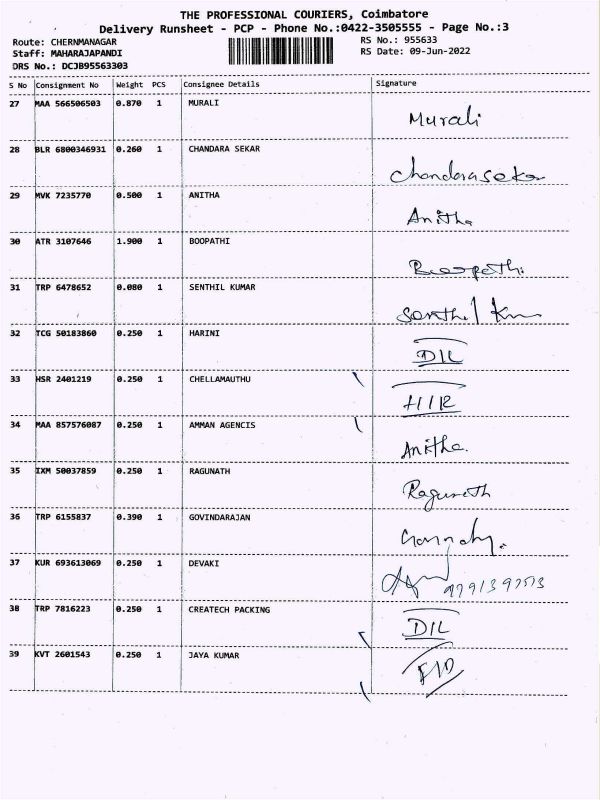 THE PROFESSIONAL COURIERS, Coimbatore
Delivery Runsheet - PCP - Phone No.:0422-3505555 - Page No.:3
Route: CHERNMANAGAR RS No.: 955633
Staff: MAHARAJAPANDI RS Date: 09-Jun-2022
DRS No.: DCJB95563303
S No Consignment No Weight PCS Consignee Details Signature
27 MAA 566506503 0.870 1 MURALI Murali
28 BLR 6800346931 0.260 1 CHANDARA SEKAR Chandarasekar
29 MVK 7235770 0.500 1 ANITHA Anitha
30 ATR 3107646 1.900 1 BOOPATHI Boopathi
31 TRP 6478652 0.080 1 SENTHIL KUMAR
32 TCG 50183860 0.250 1 HARINI D/L
33 HSR 2401219 0.250 1 CHELLAMAUTHU
34 MAA 857576087 0.250 1 AMMAN AGENCIS Anitha.
35 IXM 50037859 0.250 1 RAGUNATH Ragunath
36 TRP 6155837 0.390 1 GOVINDARAJAN
37 KUR 693613069 0.250 1 DEVAKI
38 TRP 7816223 0.250 1 CREATECH PACKING D/L
39 KVT 2601543 0.250 1 JAYA KUMAR